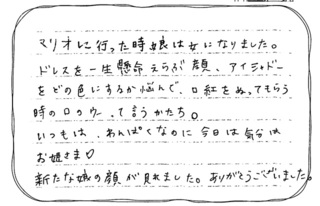 マリオに行った時娘は女になりました。
ドレスを一生懸命えらぶ顔、アイシャドー
をどの色にするか悩んで、口紅をぬってもらう
時の口のウーって言うかたち。
いつもは、わんぱくなのに今日は気分は
お姫さま♡
新たな娘の顔が見れました。ありがとうございました。